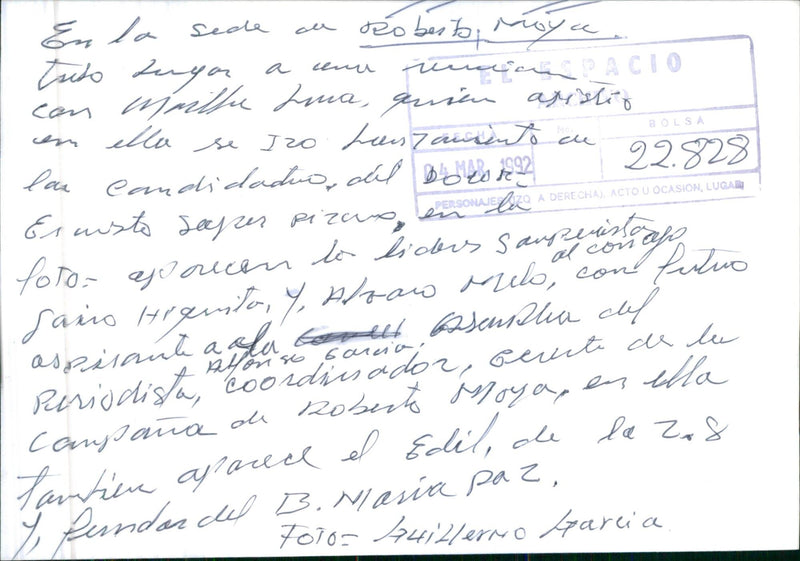 En la sede de Roberto, Moya.
tubo lugar a una reunion
con Marthe Luna, quien asistio
en ella se Izo Lanzamiento de
las candidatura, del Doctor=
Ernesto Samper Pizano, en la
foto= aparecen los lideres Samperista
Jairo Higuita, y, Alvaro Melo, al consejo, con futuro
aspirante a la Asamblea del
Periodista, Alfonso Garcia, coordinador, gerente de la
Campaña de Roberto Moya, en ella
tambien aparece el Edil, de la Z.8
y, fundador del B. Maria Paz.
Foto= Guillermo Garcia
EL ESPACIO
FECHA
BOLSA
04 MAR. 1992
22.828
PERSONAJES (IZQ. A DERECHA), ACTO U OCASION, LUGAR